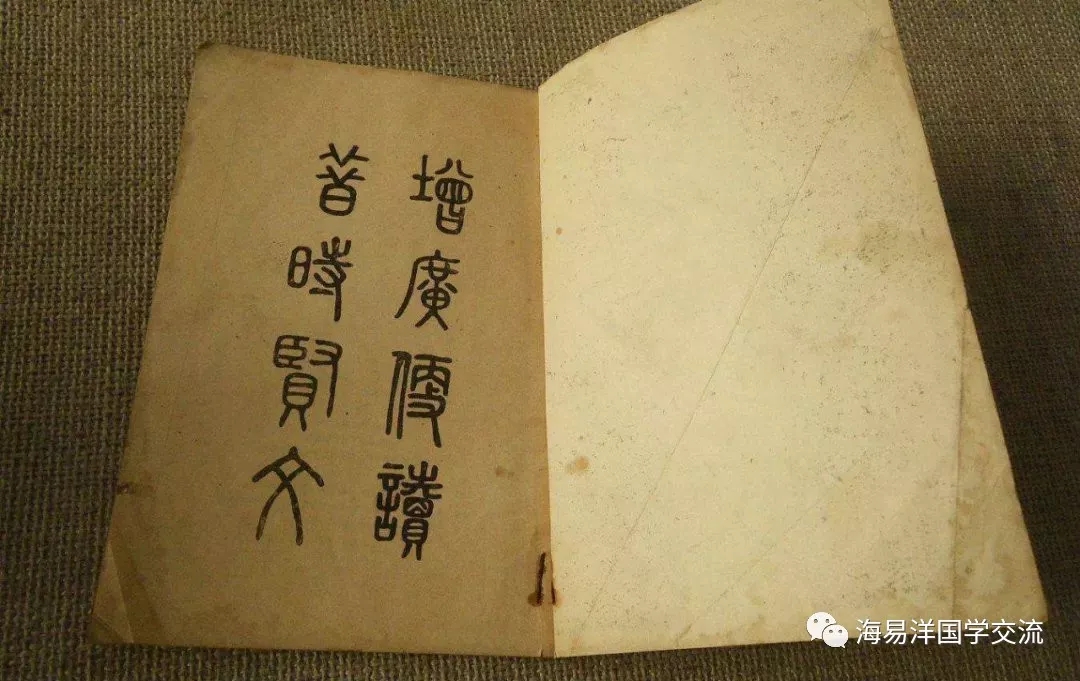 增廣便讀
昔時賢文
海易洋国学交流